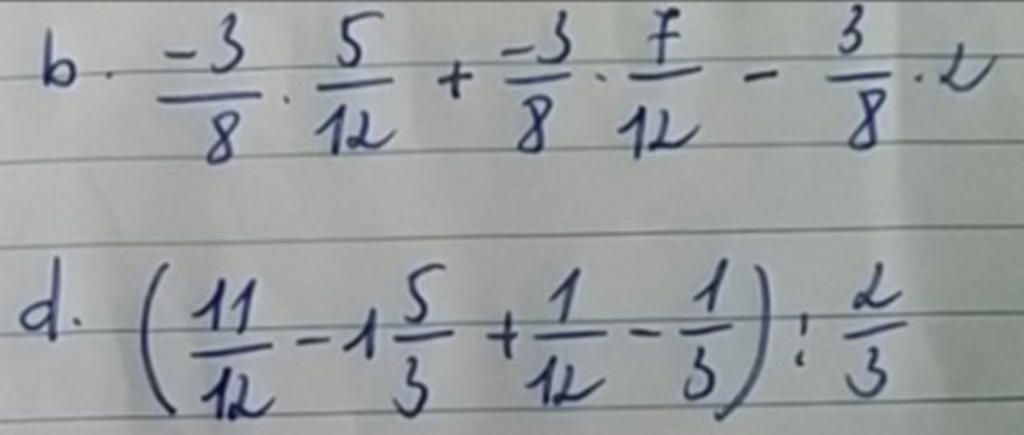 b. \frac{-3}{8} . \frac{5}{12} + \frac{-3}{8} . \frac{7}{12} - \frac{3}{8} . 2
d. \left( \frac{11}{12} - 1\frac{5}{3} + \frac{1}{12} - \frac{1}{3} \right) : \frac{2}{3}